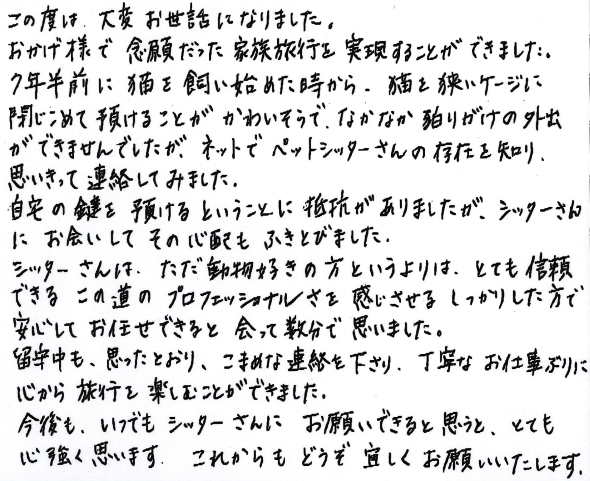 この度は、大変お世話になりました。
おかげ様で念願だった家族旅行を実現することができました。
7年半前に猫を飼い始めた時から、猫を狭いケージに
閉じこめて預けることがかわいそうで、なかなか泊りがけの外出
ができませんでしたが、ネットでペットシッターさんの存在を知り、
思いきって連絡してみました。
自宅の鍵を預けるということに抵抗がありましたが、シッターさん
にお会いしてその心配もふきとびました。
シッターさんは、ただ動物好きの方というよりは、とても信頼
できるこの道のプロフェッショナルさを感じさせるしっかりした方で
安心してお任せできると会って数分で思いました。
留守中も、思ったとおり、こまめな連絡を下さり、丁寧なお仕事ぶりに
心から旅行を楽しむことができました。
今後も、いつでもシッターさんにお願いできると思うと、とても
心強く思います。これからもどうぞ宜しくお願いいたします。